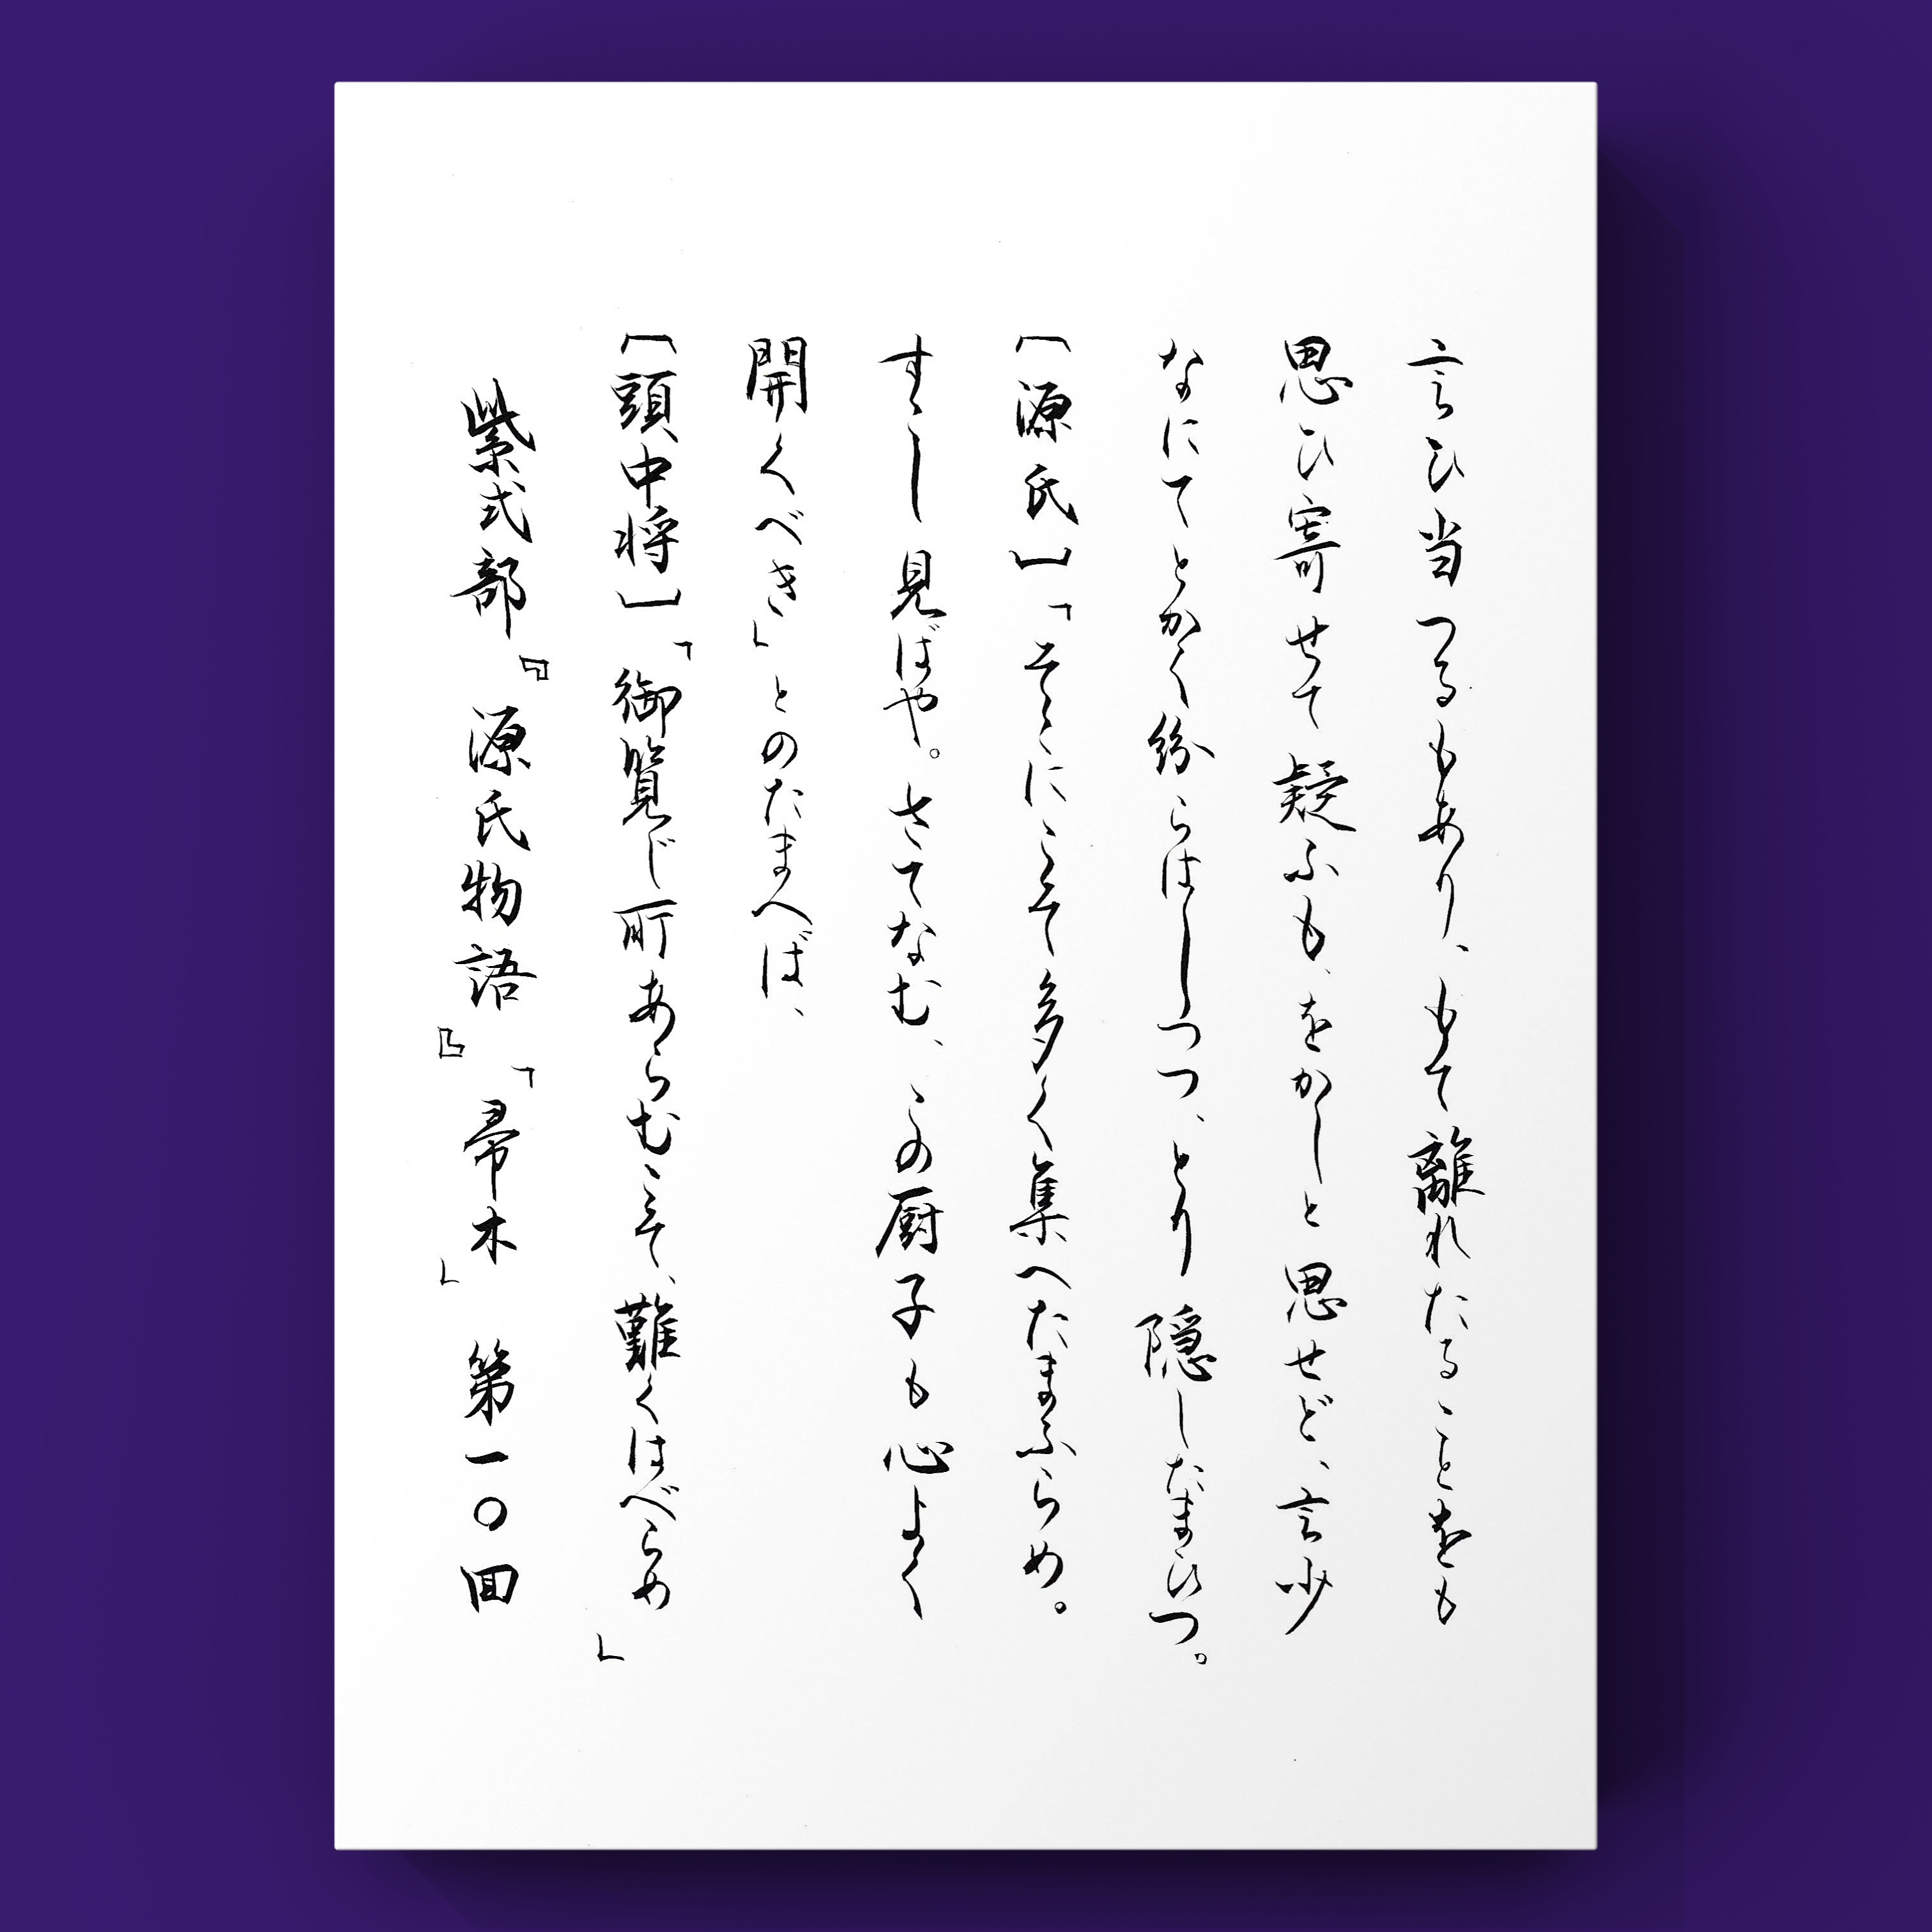 言ひ当つるもあり、もて離れたることをも
思ひ寄せて疑ふも、をかしと思せど、言少
なにてとかく紛らはしつつ、とり隠したまひつ。
〔源氏〕「そこにこそ多く集へたまふらめ。
すこし見ばや。さてなむ、この厨子も心よく
開くべき」とのたまへば、
〔頭中将〕「御覧じ所あらむこそ、難くはべらめ」
紫式部『源氏物語』「帚木」第一〇回